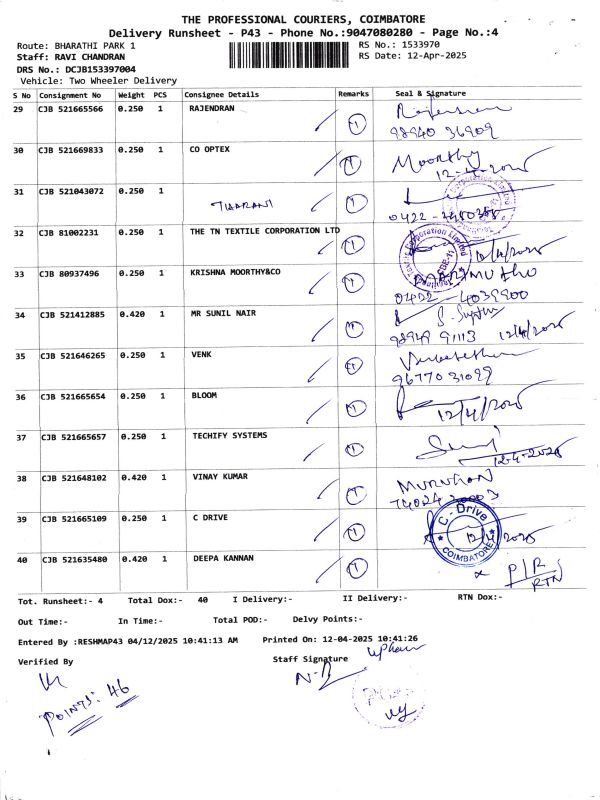 THE PROFESSIONAL COURIERS, COIMBATORE
Delivery Runsheet - P43 - Phone No.:9047080280 - Page No.:4
Route: BHARATHI PARK 1 RS No.: 1533970
Staff: RAVI CHANDRAN RS Date: 12-Apr-2025
DRS No.: DCJB153397004
Vehicle: Two Wheeler Delivery
S No Consignment No Weight PCS Consignee Details Remarks Seal & Signature
29 CJB 521665566 0.250 1 RAJENDRAN
98940 36909
30 CJB 521669833 0.250 1 CO OPTEX Moorthy
31 CJB 521043072 0.250 1 THARANI
32 CJB 81002231 0.250 1 THE TN TEXTILE CORPORATION LTD 12/4/2025
33 CJB 80937496 0.250 1 KRISHNA MOORTHY&CO
0422 - 4039900
34 CJB 521412885 0.420 1 MR SUNIL NAIR
98949 91113 12/4/2025
35 CJB 521646265 0.250 1 VENK
96770 31099
36 CJB 521665654 0.250 1 BLOOM 12/4/2025
37 CJB 521665657 0.250 1 TECHIFY SYSTEMS
12-4-2025
38 CJB 521648102 0.420 1 VINAY KUMAR MURUGAN
39 CJB 521665109 0.250 1 C DRIVE C - Drive COIMBATORE 12/4/2025
40 CJB 521635480 0.420 1 DEEPA KANNAN P/R
RTN
Tot. Runsheet:- 4 Total Dox:- 40 I Delivery:- II Delivery:- RTN Dox:-
Out Time:- In Time:- Total POD:- Delvy Points:-
Entered By :RESHMAP43 04/12/2025 10:41:13 AM Printed On: 12-04-2025 10:41:26
Verified By Staff Signature
POINTS: 46